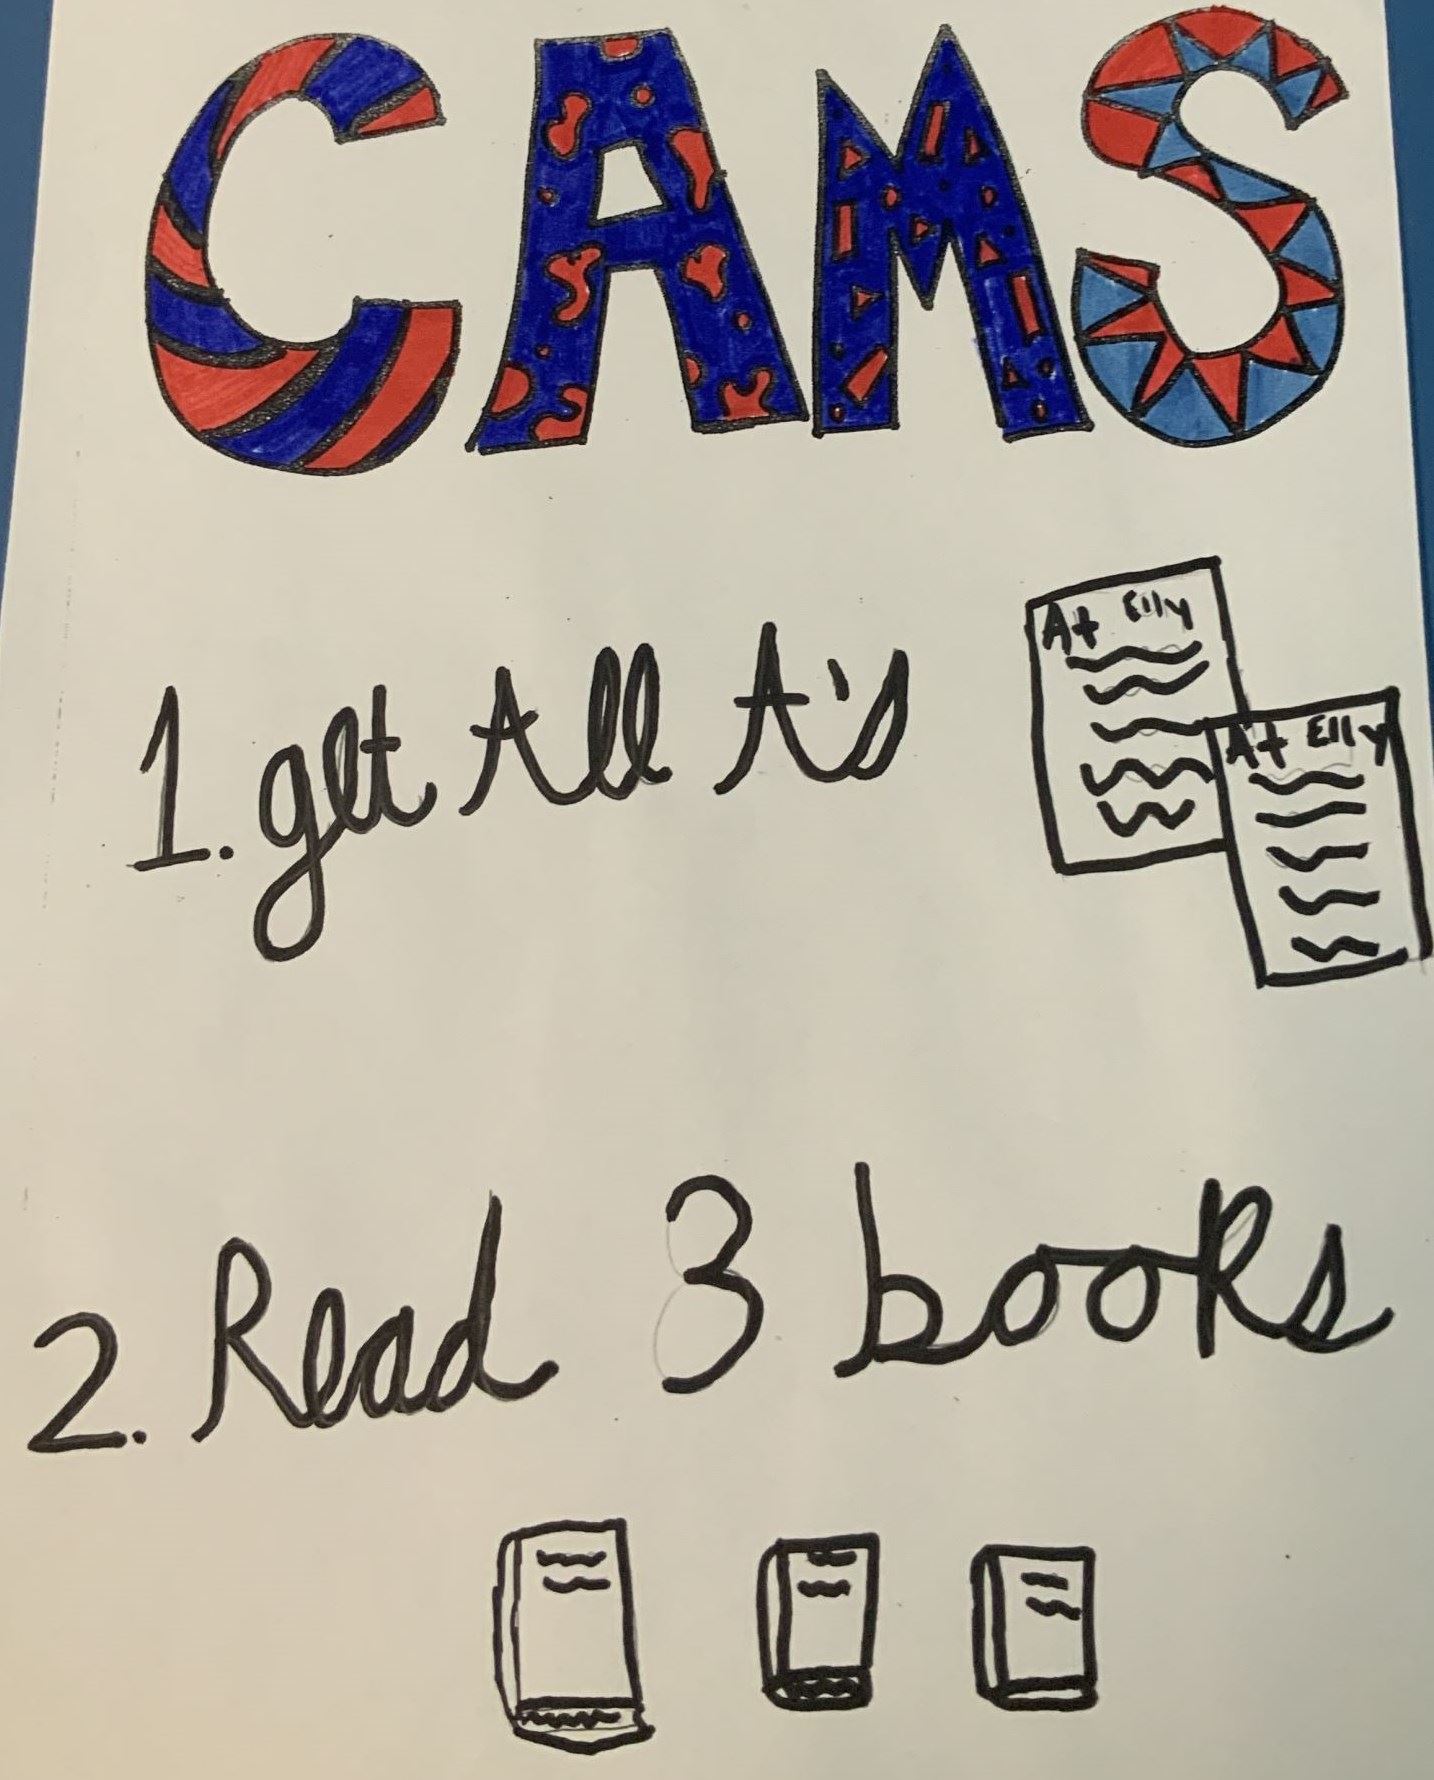 CAMS
1. get All A's
A+ Elly
A+ Elly
2. Read 3 books